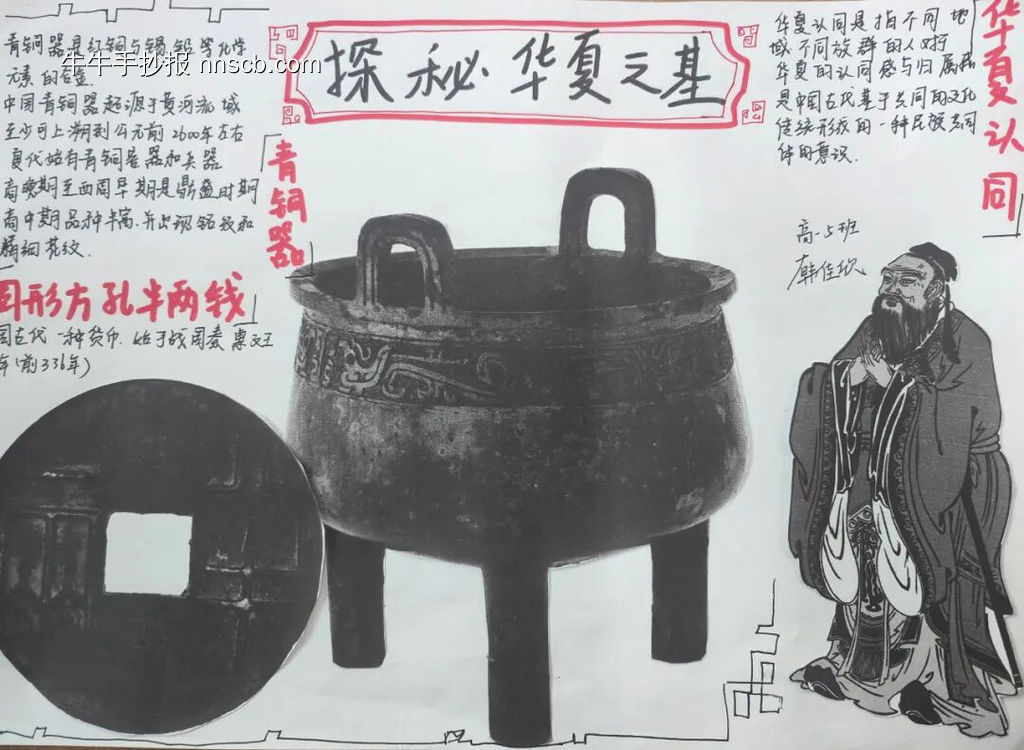 探秘华夏之基
青铜器是红铜与锡、铅等化学
元素的合金.
中国青铜器起源于黄河流域
至少可上溯到公元前2600年左右
夏代始有青铜容器和兵器
商晚期至西周早期是鼎盛时期
商中期品种丰富.并出现铭纹和
精细花纹.
青铜器
圆形方孔半两钱
国古代一种货币.始于战国秦惠文王
年(前336年)
华夏认同是指不同地
域不同族群的人对
华夏的认同感与归属感
是中国古代基于共同的文化
传统形成的一种民族共同
体的意识.
华夏认同
高一5班
韩佳欣
牛牛手抄报 nnscb.com